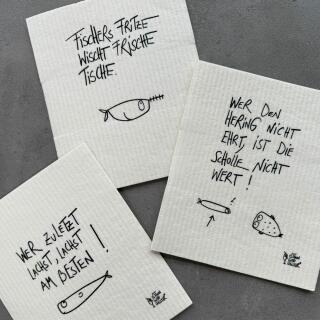 FISCHERS FRITZE
WISCHT FRISCHE
TISCHE.
WER DEN
HERING NICHT
EHRT, IST DIE
SCHOLLE NICHT
WERT!
WER ZULETZT
LACHST, LACHST
AM BESTEN!